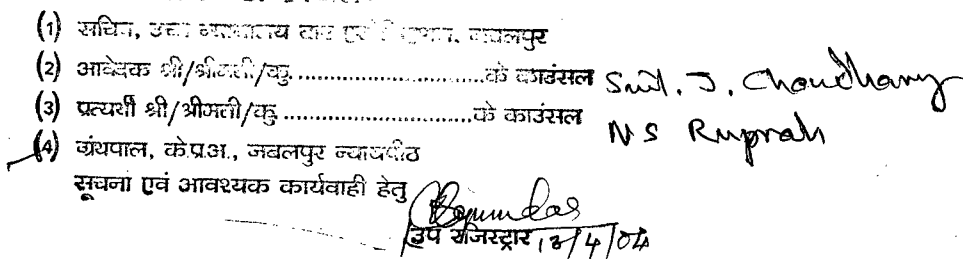 (1) सचिव, उच्च न्यायालय बार एसोसिएशन, जबलपुर
(2) आवेदक श्री/श्रीमती/कु..............................के काउंसल Smt. J. Choudhary
(3) प्रत्यर्थी श्री/श्रीमती/कु..............................के काउंसल N S Ruprah
(4) ग्रंथपाल, के.प्र.अ., जबलपुर न्यायपीठ
सूचना एवं आवश्यक कार्यवाही हेतु
उप रजिस्ट्रार 13/4/04